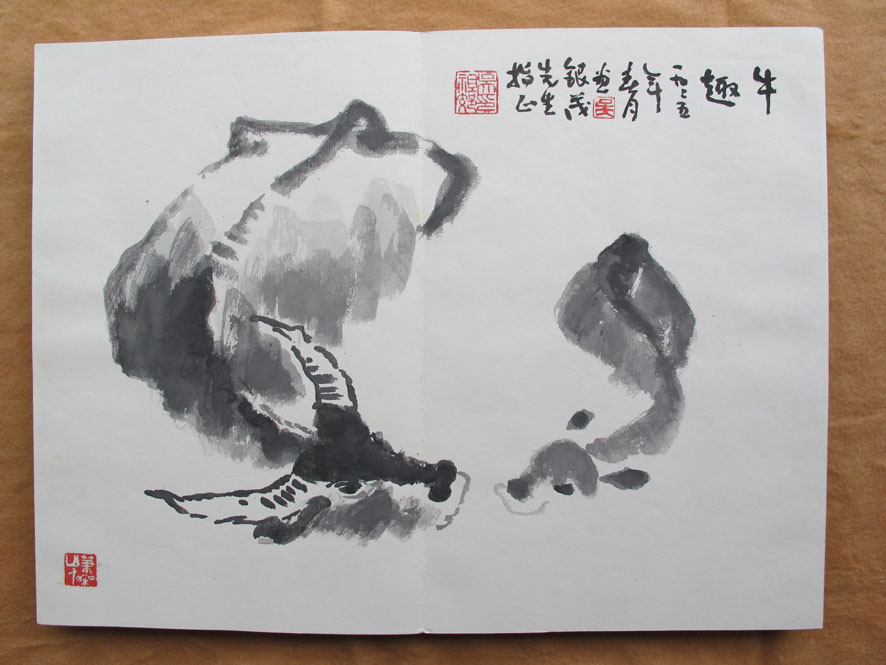 牛
趣
一九八五
年春月
画
銀茂
先生
指正